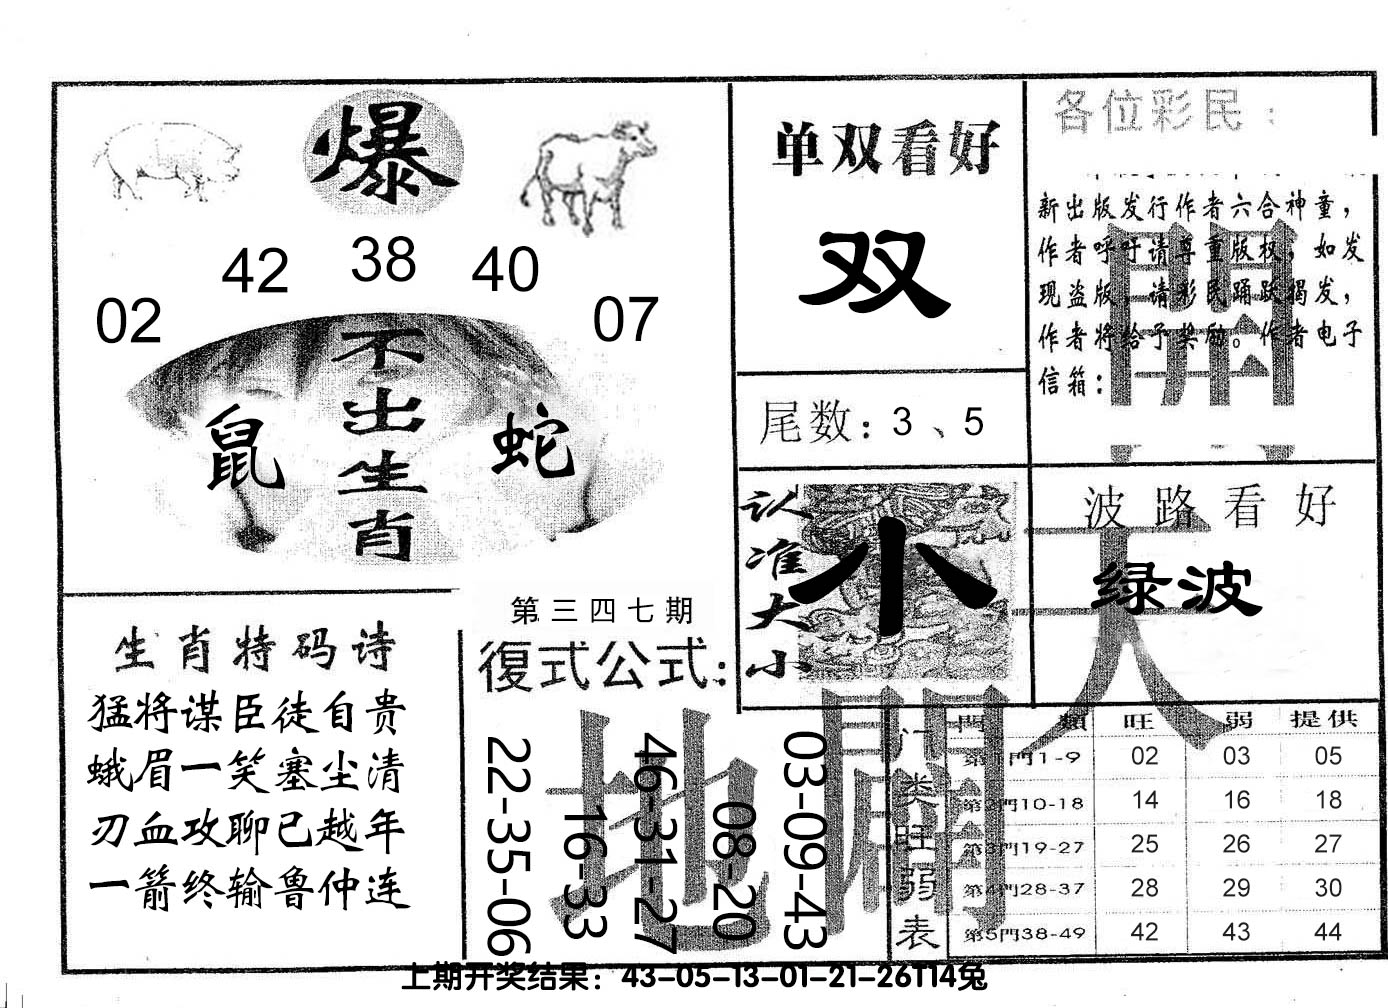 爆
42 38 40
02 07
不出生肖
鼠 蛇
单双看好
双
尾数：3、5
各位彩民：
新出版发行作者六合神童，
作者呼吁请尊重版权，如发
现盗版，请彩民踊跃揭发，
作者将给予奖励。作者电子
信箱：
認准大小
小
波路看好
绿波
天
開
地
闢
生肖特码诗
猛将谋臣徒自贵
蛾眉一笑塞尘清
刃血攻聊已越年
一箭终输鲁仲连
第三四七期
復式公式：
22-35-06
16-33
46-31-27
08-20
03-09-43
门类旺弱表
門類 旺 弱 提供
第1門1-9 02 03 05
第2門10-18 14 16 18
第3門19-27 25 26 27
第4門28-37 28 29 30
第5門38-49 42 43 44
上期开奖结果：43-05-13-01-21-26T14兔